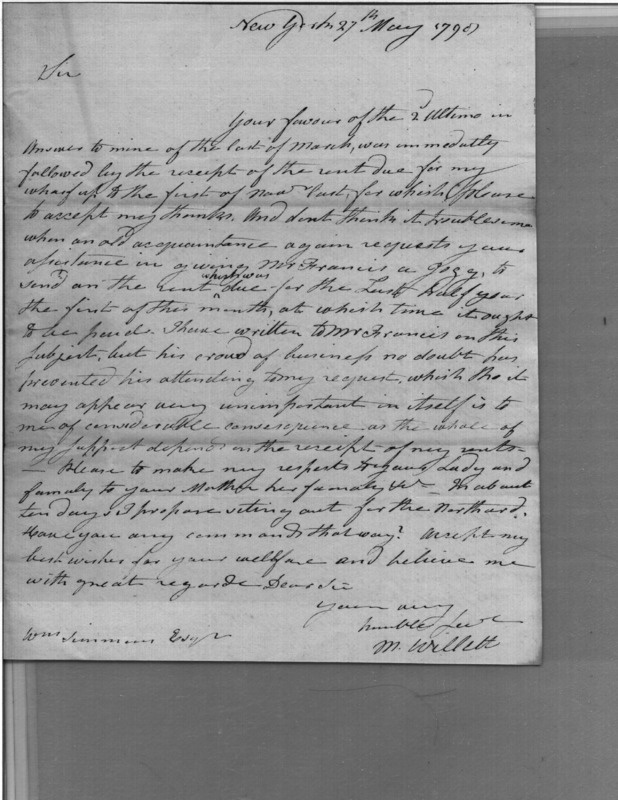 New York 27th May 1798
Sir
Your favour of the 2d Ultimo in
Answer to mine of the last of March, was immediatly
followed by the receipt of the rent due for my
wharf up to the first of Novr last, for which please
to accept my thanks. And dont think it troublesome
when an old acquaintance again requests your
assistance in giving Mr Francis a Jogg, to
send on the rent which was due for the Last half year
the first of this month, at which time it ought
to be paid. I have written to Mr Francis on this
subject, but his croud of business no doubt has
prevented his attending to my request, which tho it
may appear very unimportant in itself is to
me of considerable consequence as the whole of
my support depends on the receipt of my rents—
— Please to make my respects to your Lady and
family to your Mother her family &c— In about
ten days I propose seting out for the Northard.
Have you any commands that way? Accept my
best wishes for your wellfare and believe me
with great regard Dear Sir
Your very
humble Servt
M. Willett
Wm Simmons Esqr